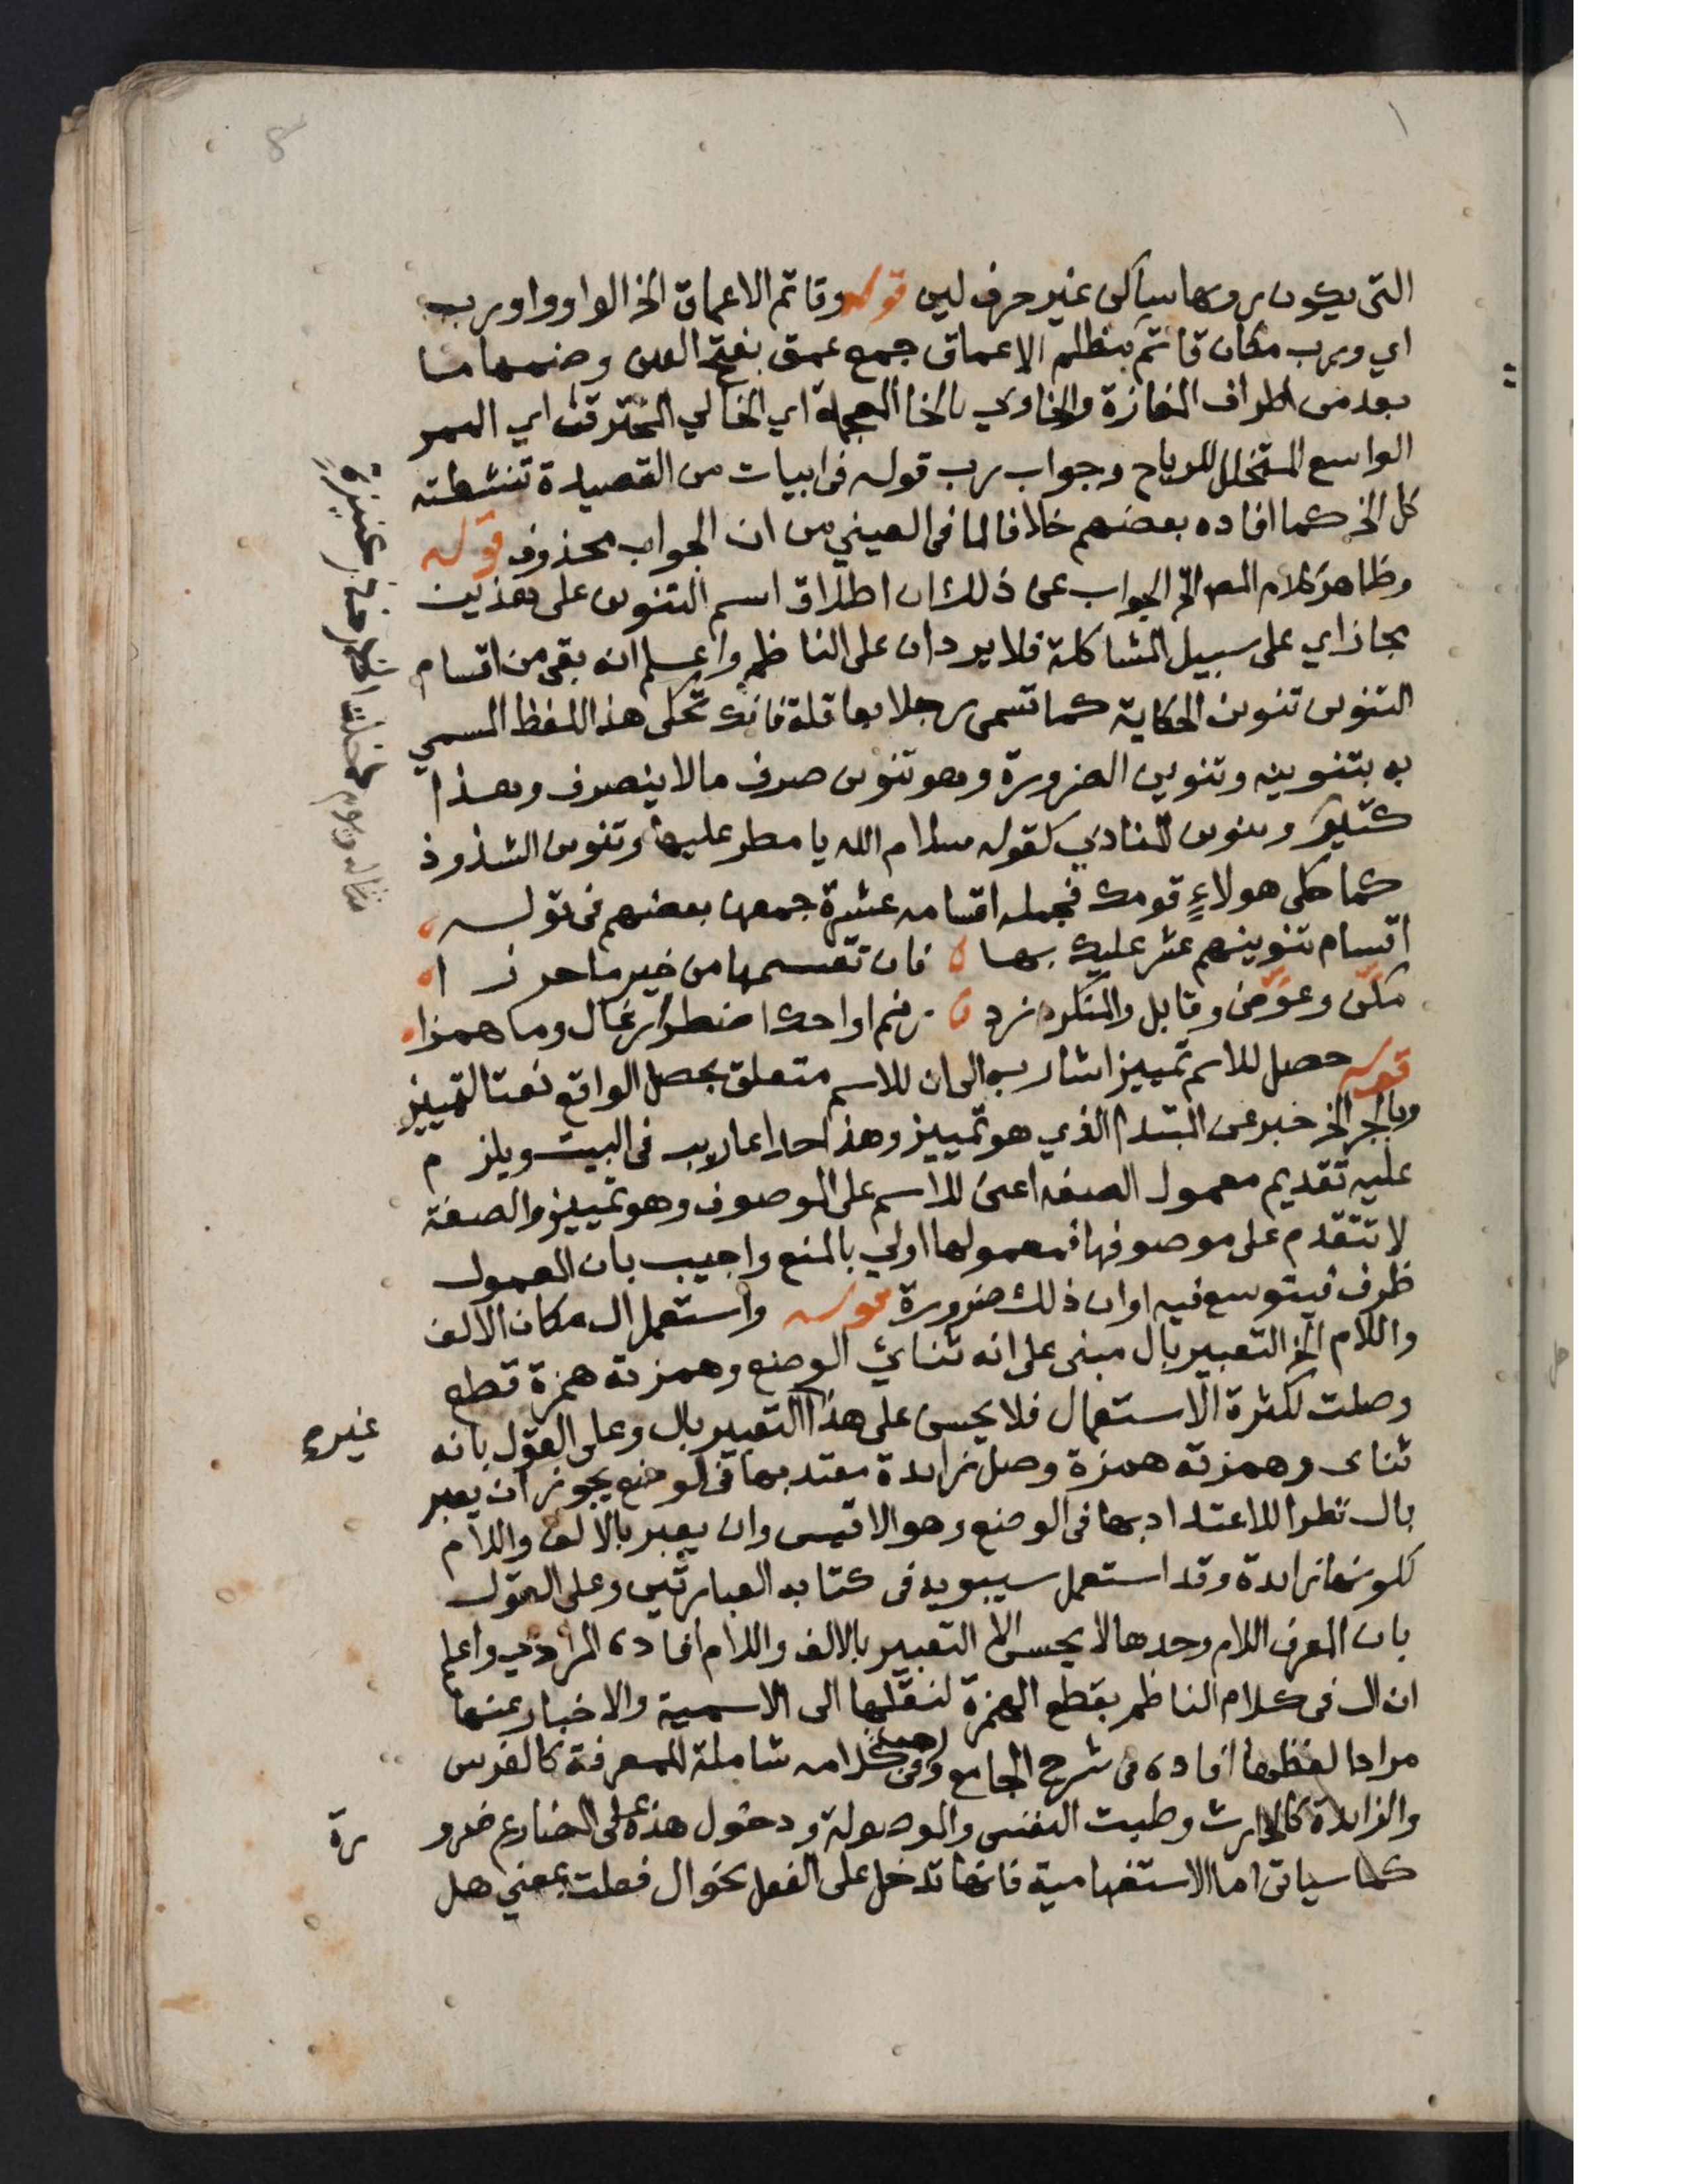 8
التى يكون رويها ساكن غير حرف لين قوله وقاتم الاعماق الخ الواو واو رب
اي ورب مكان قاتم بمظلم الاعماق جمع عمق بفتح العين وضمها ما
بعد من اطراف المفازة والخاوي بالخا المعجمة اي الخالي المخترقن اي الممر
الواسع المتخلل للرياح وجواب رب قوله فى ابيات من القصيدة تنشطته
كل الخ كما افاده بعضهم خلافا لما فى العيني من ان الجواب محذوف قوله
وظاهر كلام المص الخ الجواب عن ذلك ان اطلاق اسم التنوين على هذين
مجاز اي على سبيل المشاكلة فلا يردان على الناظم واعلم انه بقى من اقسام
التنوين تنوين الحكاية كما تسمى رجلا بعاقلة فانك تحكى هذا اللفظ المسمي
به بتنوينه وتنوين الضرورة وهو تنوين صرف مالا ينصرف وهذا
كثير وتنوين المنادي كقوله سلام الله يا مطر عليها وتنوين الشذوذ
كما حكى هولاءٍ قومك فجمله اقسامه عشرة جمعها بعضهم فى قوله
اقسام تنوينهم عشر عليك بها فان تقسيمها من خير ما حرزا
مكّن وعوّض وقابل والمنكر زد رنم او احك اضطرار غال وما همزا
قوله حصل للاسم تمييز اشار به الى ان للاسم متعلق بحصل الواقع نعتا لتمييز
وبالجر الخ خبر عن المبتدا الذي هو تمييز وهذا احد اعاريب فى البيت ويلزم
عليه تقديم معمول الصفه اعنى للاسم على الموصوف وهو تمييز والصفة
لا تتقدم على موصوفها فمعمولها اولي بالمنع واجيب بان المعمول
ظرف فيتوسع فيه او ان ذلك ضرورة قوله واستعمل ال مكان الالف
واللام الخ التعبير بال مبنى على انه ثنائي الوضع وهمزته همزة قطع
وصلت لكثرة الاستعمال فلا يحسن على هذا التعبير بال وعلى القول بانه
غيره
ثناى وهمزته همزة وصل زايدة معتد بها فى الوضع يجوز ان يعبر
بال نظرا للاعتداد بها فى الوضع وهو الاقيس وان يعبر بالالف واللام
لكونها زايدة وقد استعمل سيبويه فى كتابه العبارتين وعلى القول
بان المعرف اللام وحدها لا يحسن الا التعبير بالالف واللام افاده المرادي واعلم
ان ال فى كلام الناظم بقطع الهمزة لنقلها الى الاسمية والاخبار عنها
مرادا لفظها افاده فى شرح الجامع وهي فى كلامه شاملة للمعرفة كالفرس
والزايدة كالحارث وطبت النفس والموصولة ودخول هذه على المضارع ضرو
رة
كما سياتى اما الاستفهامية فانها تدخل على الفعل نحو ال فعلت بمعني هل
مثاله ويوم دخلت الخدر خدر عنيزةٍ